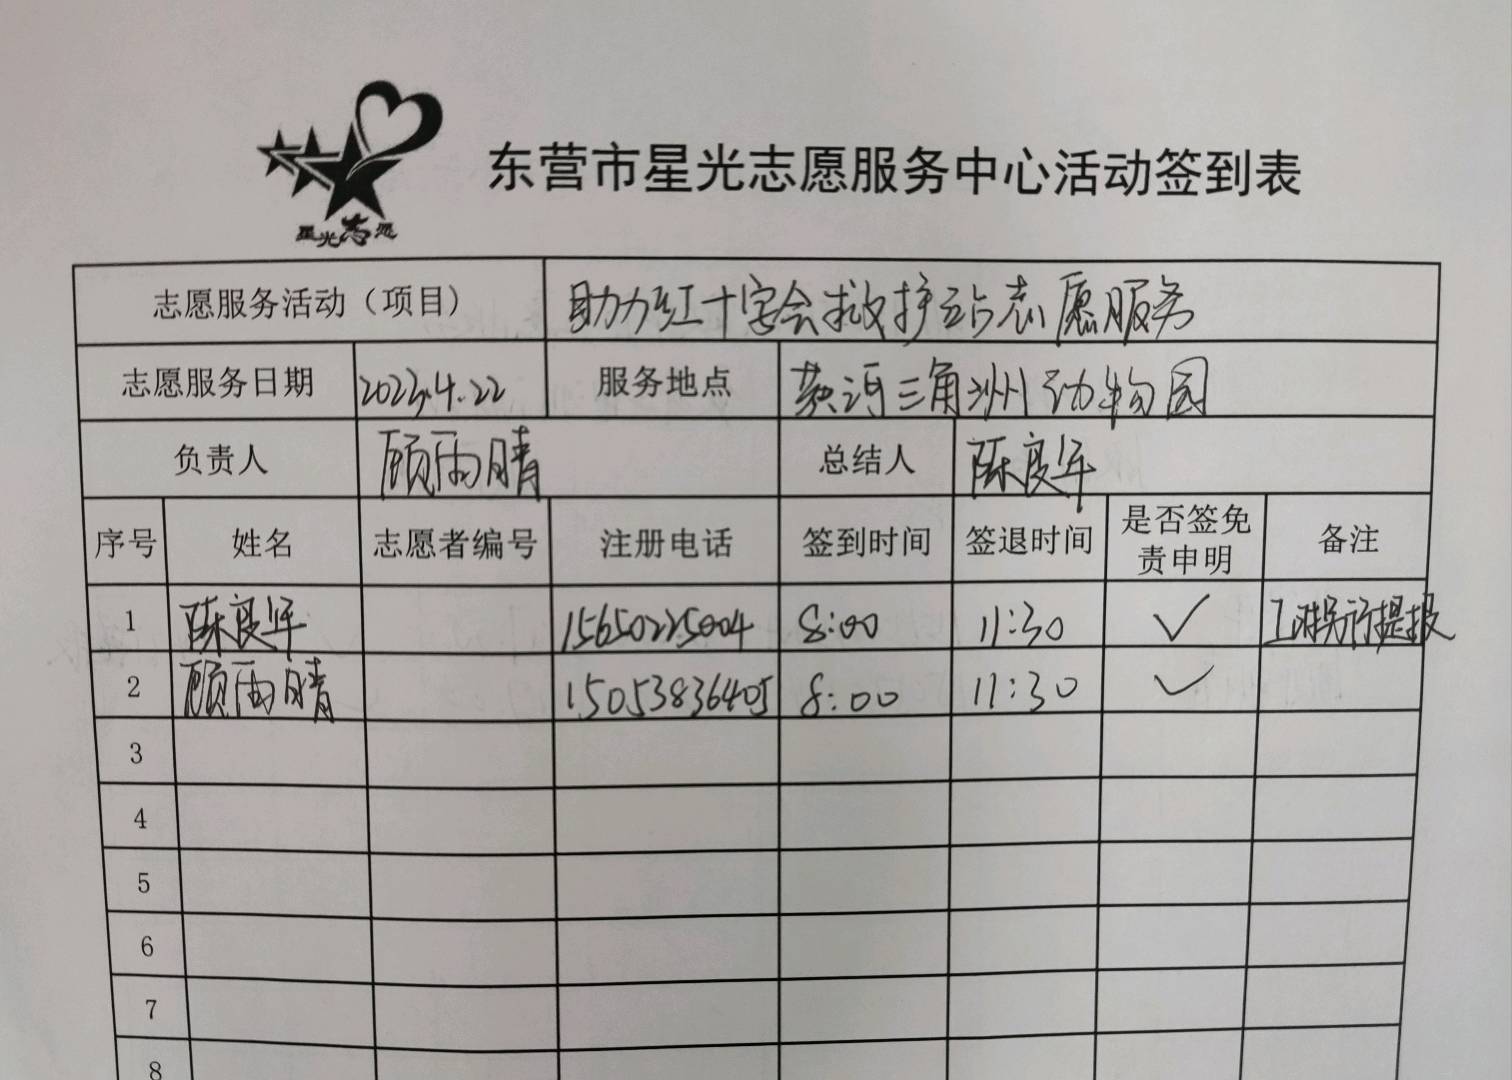 星光志愿
东营市星光志愿服务中心活动签到表
志愿服务活动（项目） 助力红十字会救护站志愿服务
志愿服务日期 2023.4.22 服务地点 黄河三角洲动物园
负责人 顾雨晴 总结人 陈良军
序号 姓名 志愿者编号 注册电话 签到时间 签退时间 是否签免责申明 备注
1 陈良军 15650225004 8:00 11:30 ✓
2 顾雨晴 15053836405 8:00 11:30 ✓
3
4
5
6
7
8